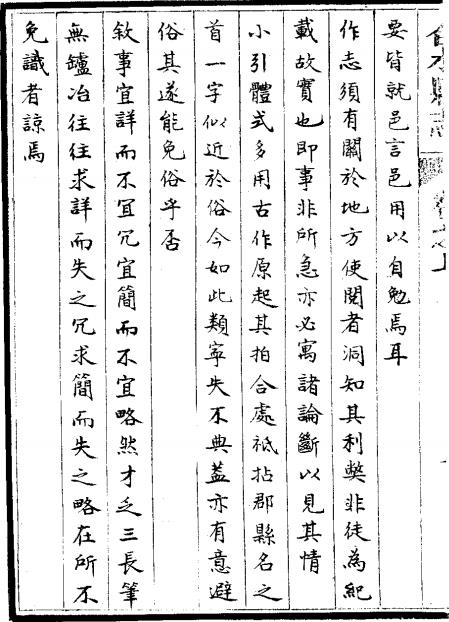 要皆就邑言邑用以自勉焉耳
作志須有關於地方使閱者洞知其利獘非徒為紀
載故實也即事非所急亦必寓諸論斷以見其情
小引體式多用古作原起其拍合處祇拈郡縣名之
首一字似近於俗今如此類寧失不典蓋亦有意避
俗其遂能免俗乎否
敘事宜詳而不宜冗宜簡而不宜略然才乏三長筆
無鑪冶往往求詳而失之冗求簡而失之略在所不
免識者諒焉